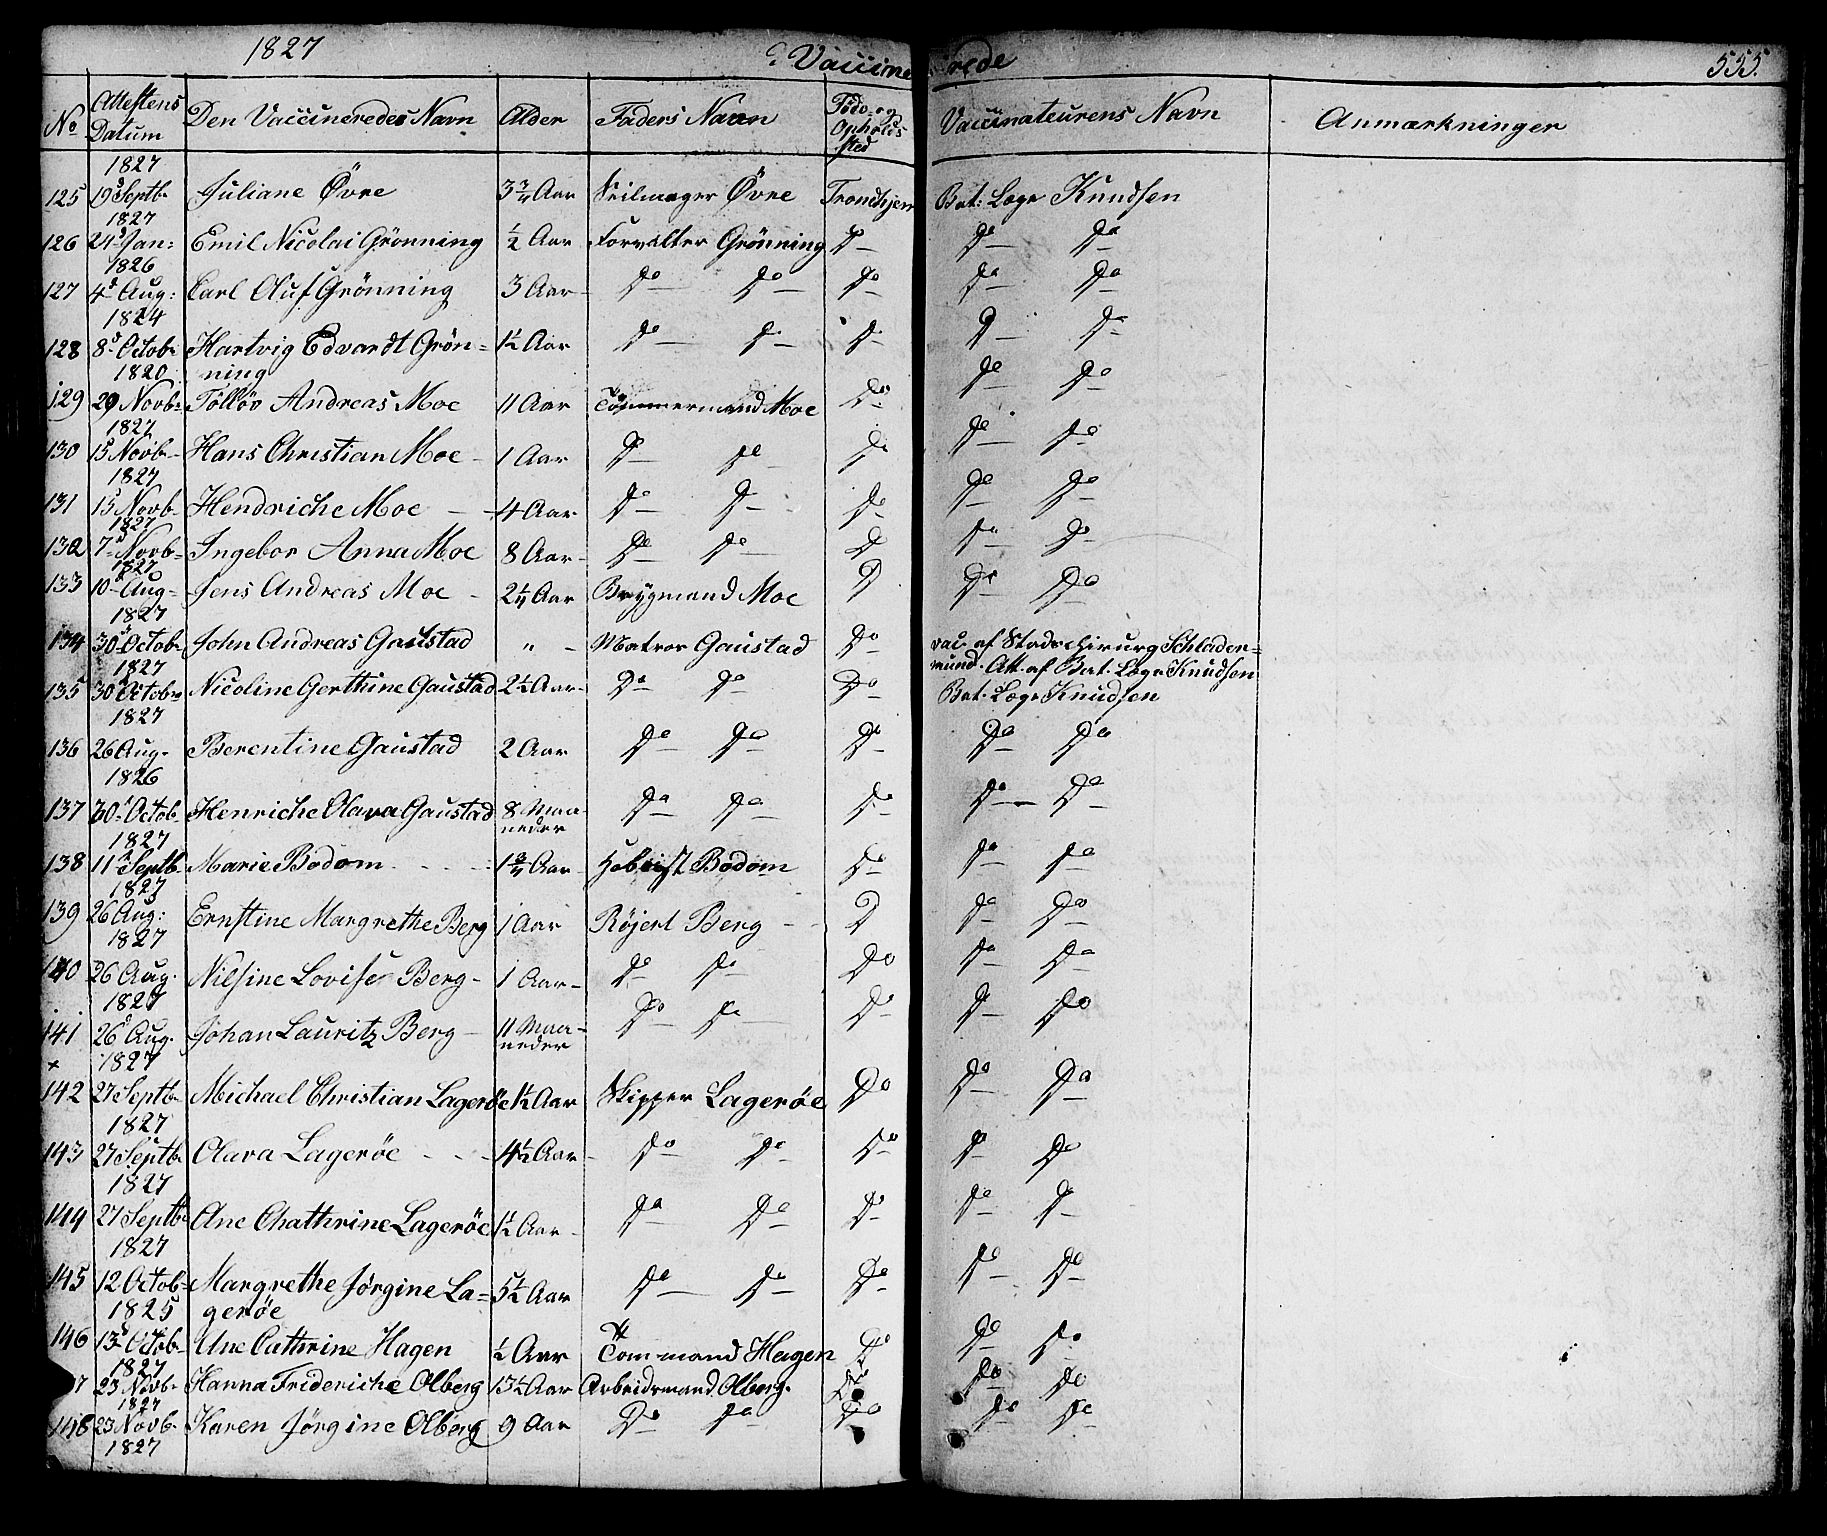 1827 Vaccine rede 555.
No Attestens Datum Den Vaccineredes Navn Alder Faders Navn Føde- og Opholds sted Vaccinateurens Navn Anmærkninger
1827
125 19d Septb. Juliane Øvre 3 3/4 Aar Seilmager Øvre Trondhjem Bat: Læge Knudsen
1827
126 24d Jan: Emil Nicolai Grönning 1/2 Aar Forvalter Grönning Do Do Do
1826
127 4d Aug: Carl Oluf Grönning 3 Aar Do Do Do Do Do
1824
128 8d Octob. Hartvig Edvardt Grön= 1 1/2 Aar Do Do Do Do Do
1820 ning
129 29 Novb. Tölløv Andreas Moe 11 Aar Tömmermand Moe Do Do Do
1827
130 15d Novb. Hans Christian Moe 1 Aar Do Do Do Do Do
1827
131 15d Novb. Hendriche Moe 4 Aar Do Do Do Do Do
1827
132 7d Novb. Ingebor Anna Moe 8 Aar Do Do Do Do Do
1827
133 10d Aug. Jens Andreas Moe 2 1/4 Aar Brygmand Moe Do Do Do
1827
134 30d Octob. John Andreas Gaustad " Matros Gaustad Do vac. af Stadschirurg Schladen=
1827 mund. Att. af Bat. Læge Knudsen
135 30d Octobr Nicoline Gerthine Gaustad 2 1/2 Aar Do Do Do Bat. Læge Knudsen
1827
136 26 Aug. Berentine Gaustad 2 Aar Do Do Do Do Do
1826
137 30d Octob. Henriche Olava Gaustad 8 Maa= neder Do Do Do Do Do
1827
138 11d Septb. Marie Bodom 1 3/4 Aar Hoboist Bodom Do Do Do
1827
139 26d Aug: Ernstine Margrethe Berg 1 Aar Røjert Berg Do Do Do
1827
140 26 Aug. Nilsine Lovise Berg 1 Aar Do Do Do Do Do
1827
141 26d Aug. Johan Lauritz Berg 11 Maa= neder Do Do Do Do Do
1827
142 27 Septb. Michael Christian Lageröe 1 1/2 Aar Skipper Lagerøe Do Do Do
1827
143 27 Septb. Olava Lagerøe 4 1/2 Aar Do Do Do Do Do
1827
144 27 Septb. Ane Chathrine Lagerøe 1 1/2 Aar Do Do Do Do Do
1827
145 12 Octob. Margrethe Jørgine La= 5 1/2 Aar Do Do Do Do Do
1825 gerøe
146 13d Octob. Ane Cathrine Hagen 1/2 Aar Tommand Hagen Do Do Do
1827
7 23 Novb. Hanna Frideriche Olberg 13 1/2 Aar Arbeidsmand Olberg. Do Do Do
1827
148 23 Novb. Karen Jørgine Olberg 9 Aar Do Do Do Do Do
1827